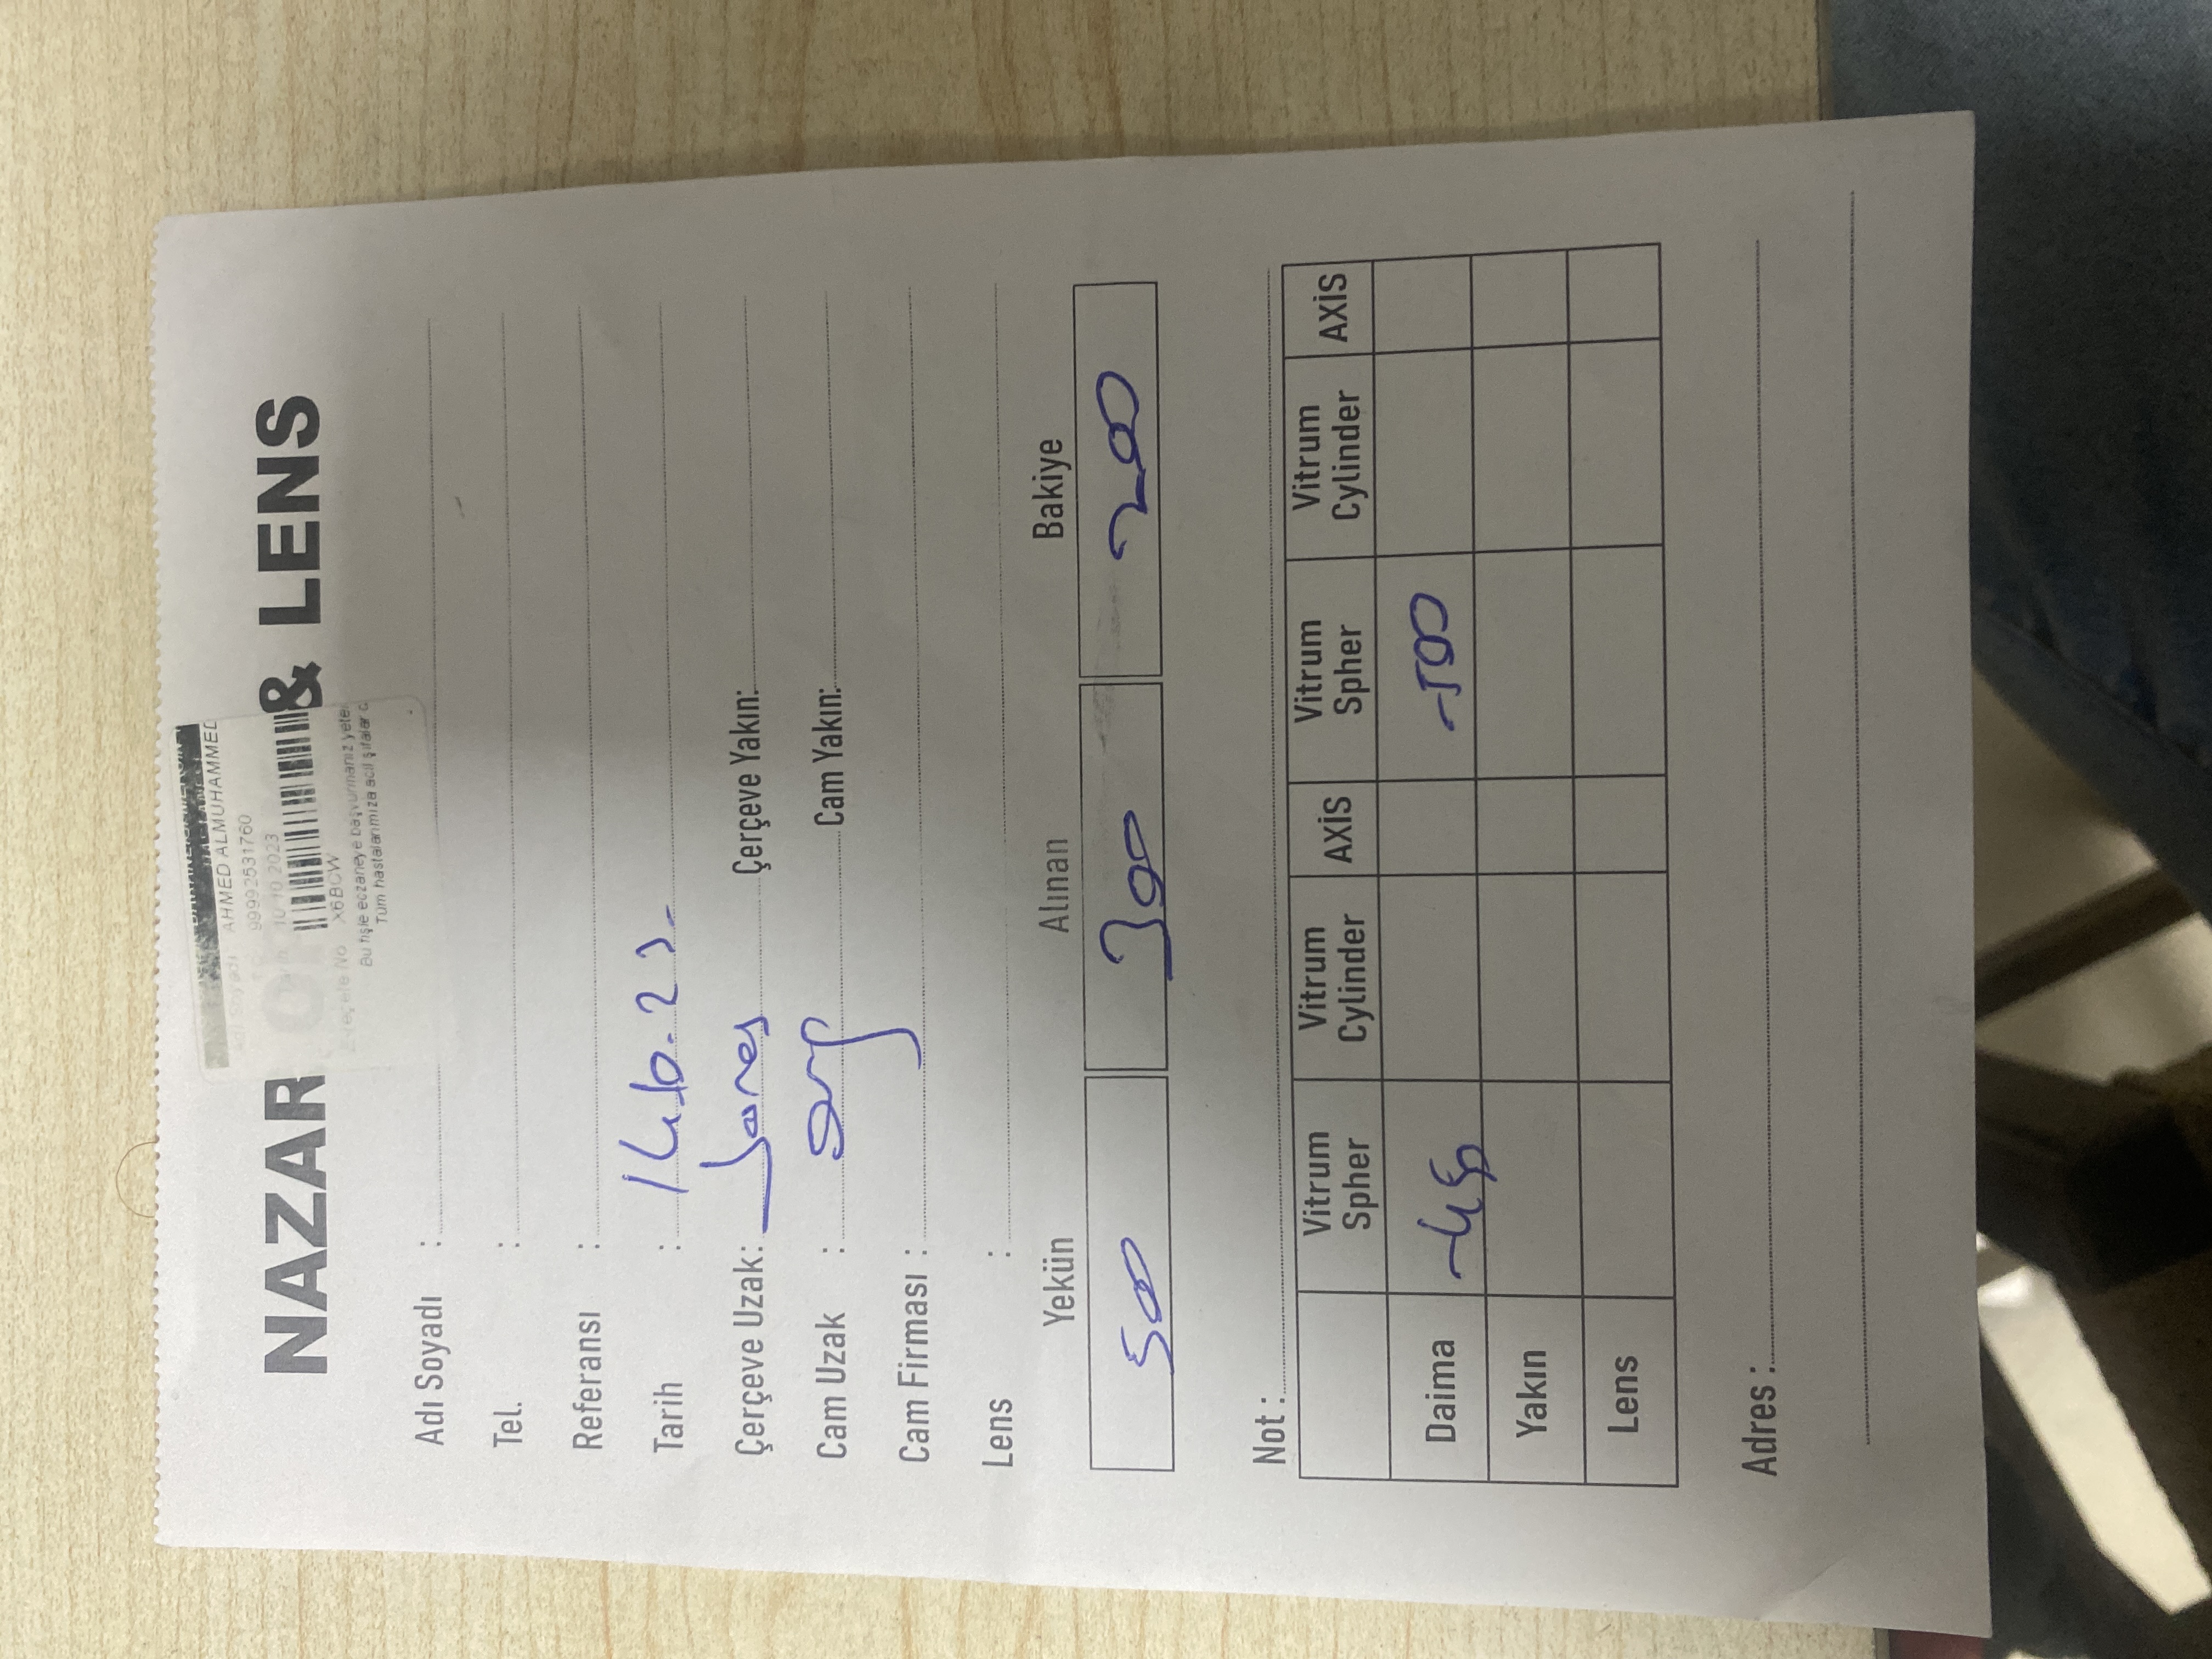 AHMED ALMUHAMMED
Adı Soyadı
99992531760
Tarih 10.10.2023
NAZAR & LENS
E-reçete No X6BCW
Bu fişle eczaneye başvurmanız
Tüm hastalarımıza acil şifalar
Adı Soyadı :
Tel. :
Referansı :
Tarih : 14.10.23.
Çerçeve Uzak: Çerçeve Yakın:
Cam Uzak : Cam Yakın:
Cam Firması :
Lens :
Yekün Alınan Bakiye
500 300 200
Not :
Vitrum Spher Vitrum Cylinder AXİS Vitrum Spher Vitrum Cylinder AXİS
Daima -450 -500
Yakın
Lens
Adres :